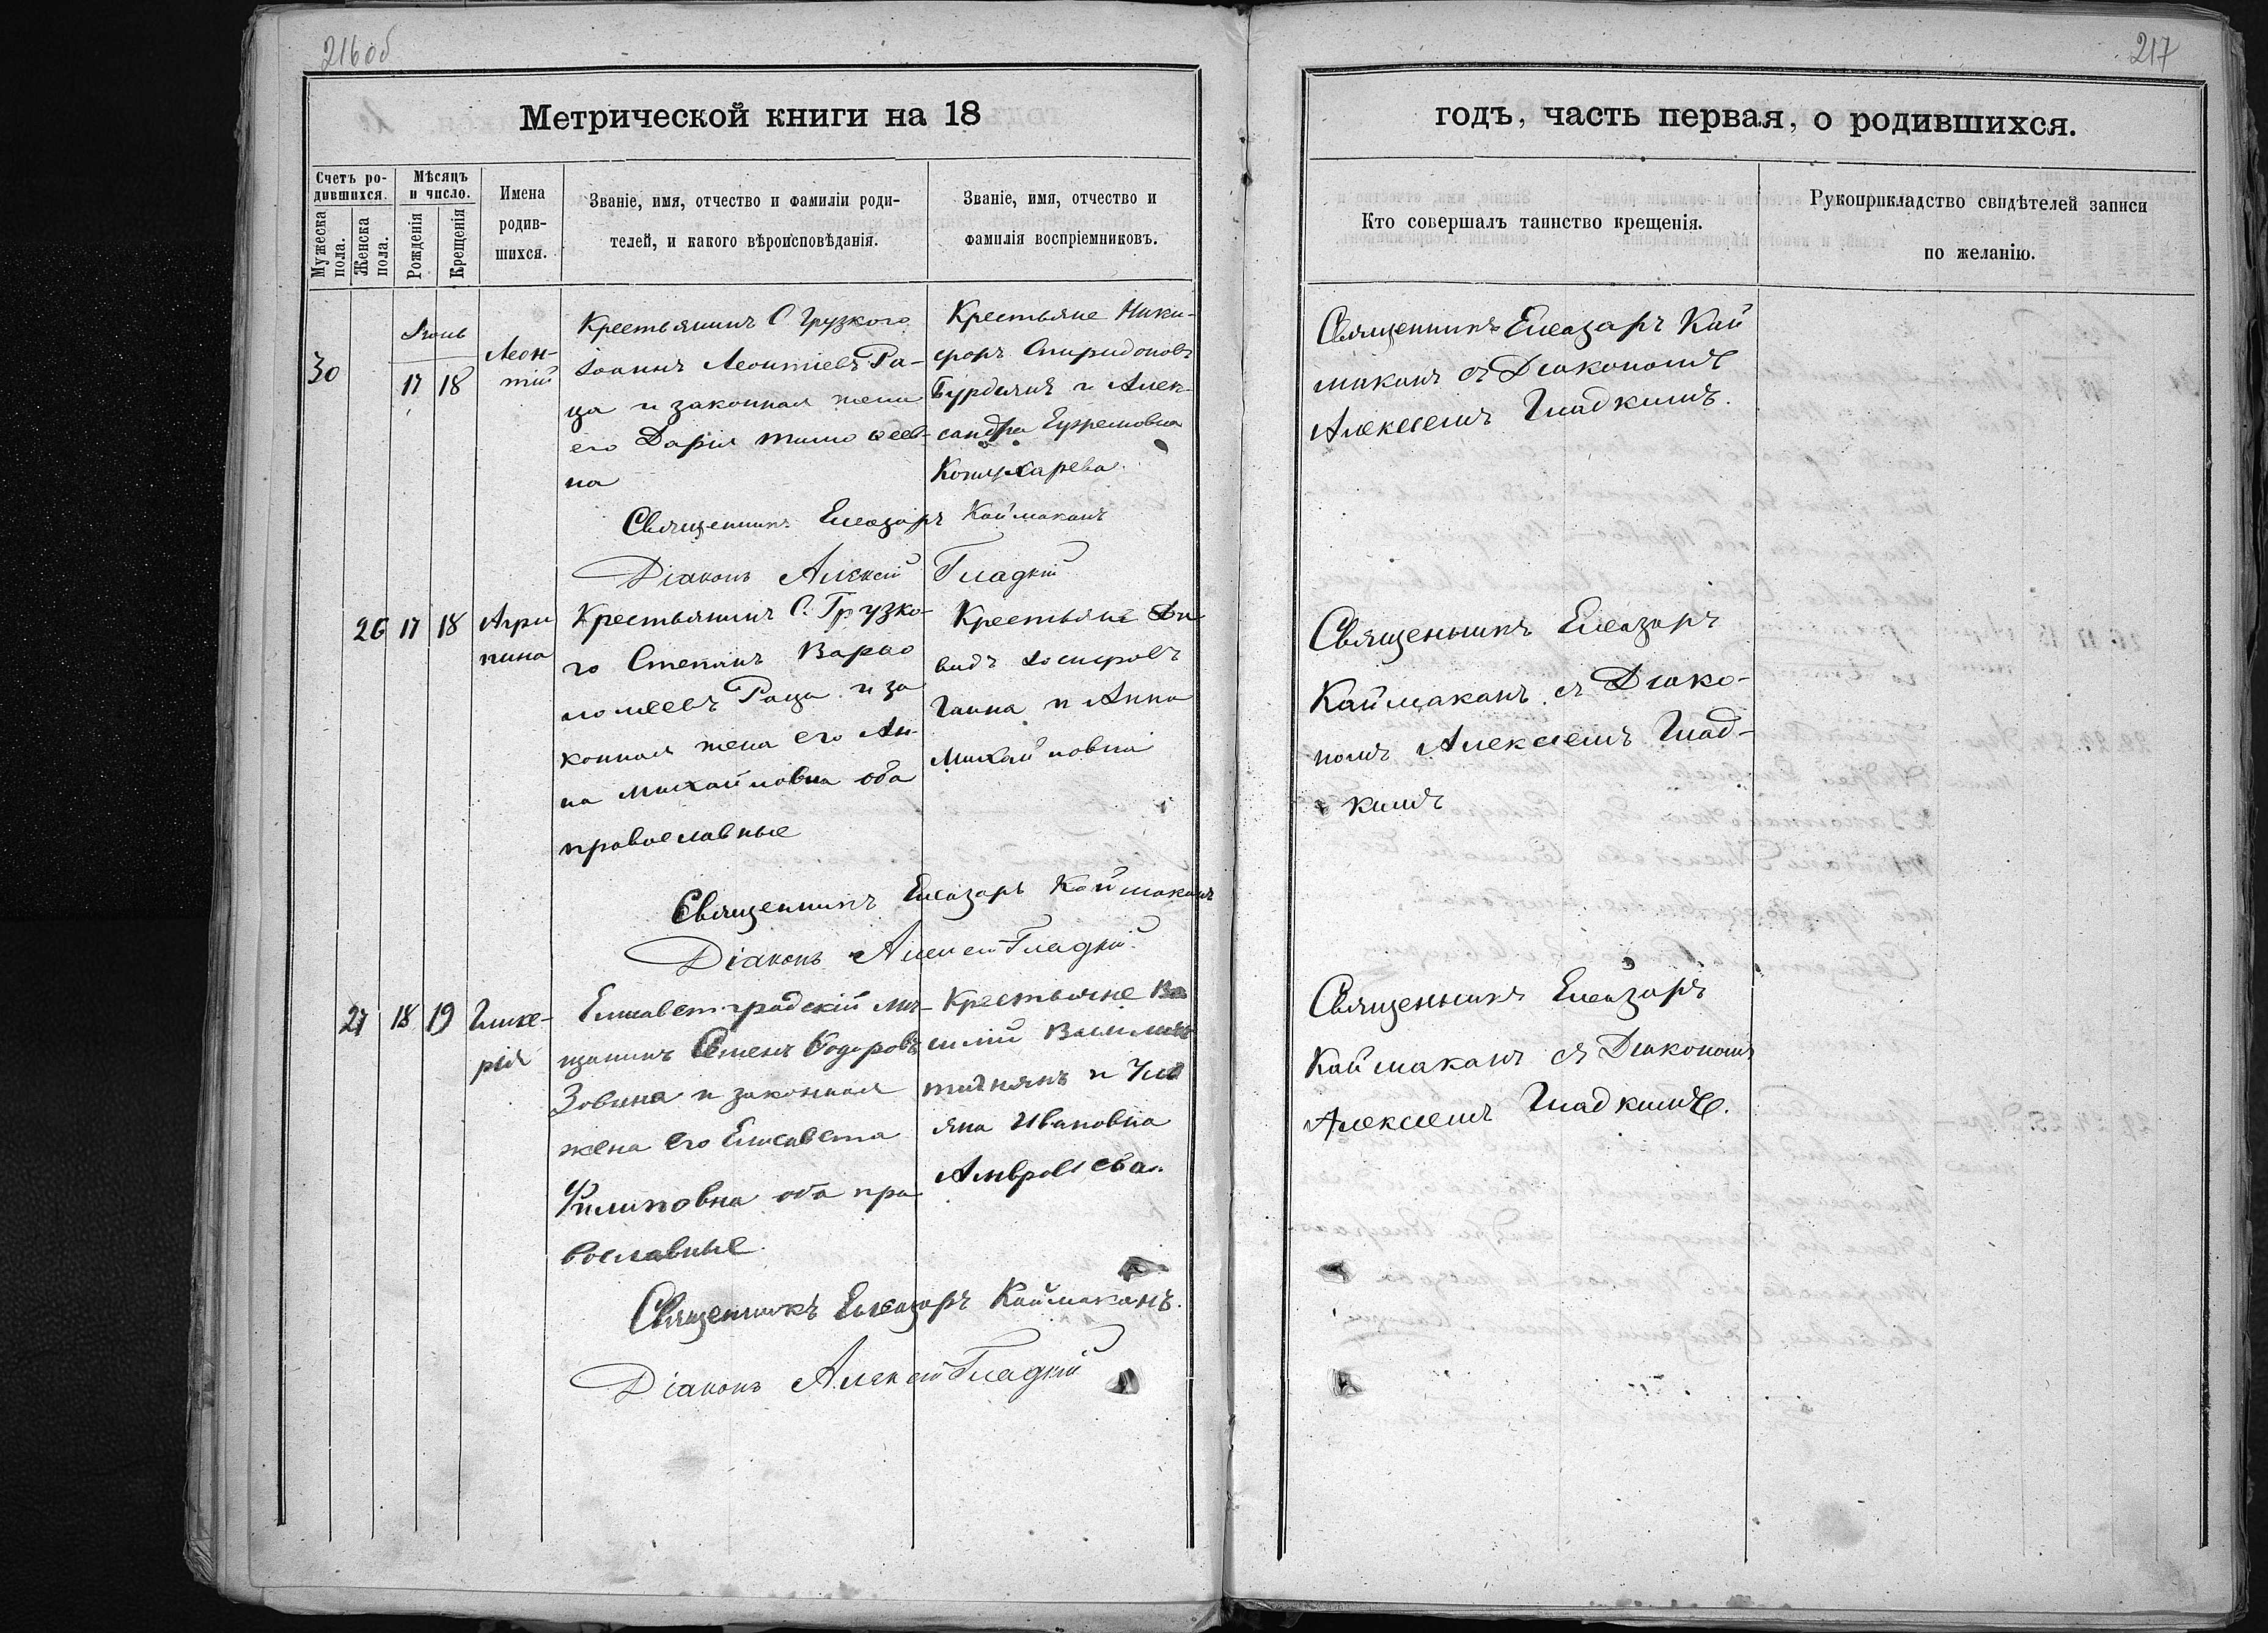 216 об
Метрической книги на 18
Счетъ ро-
дившихся.
Мужеска пола.
Женска пола.
Мѣсяцъ
и число.
Рожденія
Крещенія
Имена
родив-
шихся.
Званіе, имя, отчество и фамиліи роди-
телей, и какого вѣроисповѣданія.
Званіе, имя, отчество и
фамилія воспріемниковъ.
30
Іюнь
17 18
Леон-
тій
Крестьянинъ С. Грузкого
Іоаннъ Леонтіевъ Ра-
ца и законная жена
его Дарія Тимоѳеев-
на
Крестьяне Ники-
форъ Спиридоновъ
и Алек-
сандра Ефремовна
Священникъ Елеазаръ Каймаканъ
Діаконъ Алексій Гладкій
26 17 18
Агри
пина
Крестьянинъ С. Грузко-
го Степанъ Варѳо
ломеевъ Раца и за
конная жена его Ан-
на Михайловна оба
православные
Крестьяне Да
видъ Іосифовъ
и Анна
Михайловна
Священникъ Елеазаръ Каймаканъ
Діаконъ Алексій Гладкій
27 18 19
Глике-
рія
Елисаветградскій мѣ-
щанинъ Семенъ Ѳодоровъ
Зовина и законная
жена его Елисавета
Филиповна оба пра
вославные
Крестьяне Ва
силій Василіевъ
и Уль
яна Ивановна
Священникъ Елеазаръ Каймаканъ.
Діаконъ Алексій Гладкій
217
годъ, часть первая, о родившихся.
Кто совершалъ таинство крещенія.
Рукоприкладство свидѣтелей записи
по желанію.
Священникъ Елеазаръ Кай
маканъ съ Діакономъ
Алексеемъ Гладкимъ.
Священникъ Елеазаръ
Каймаканъ съ Діако-
номъ Алексеемъ Глад-
кимъ
Священникъ Елеазаръ
Каймаканъ съ Діакономъ
Алексеемъ Гладкимъ.